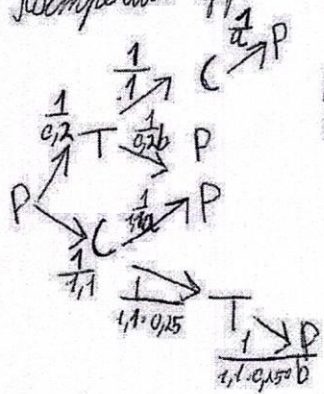 1/a P
1/1 C
1/0,2 T 1/0,2b P
P
C P
1/1,1
1/1,1·0,25 T
P
1/1,1·0,25·b